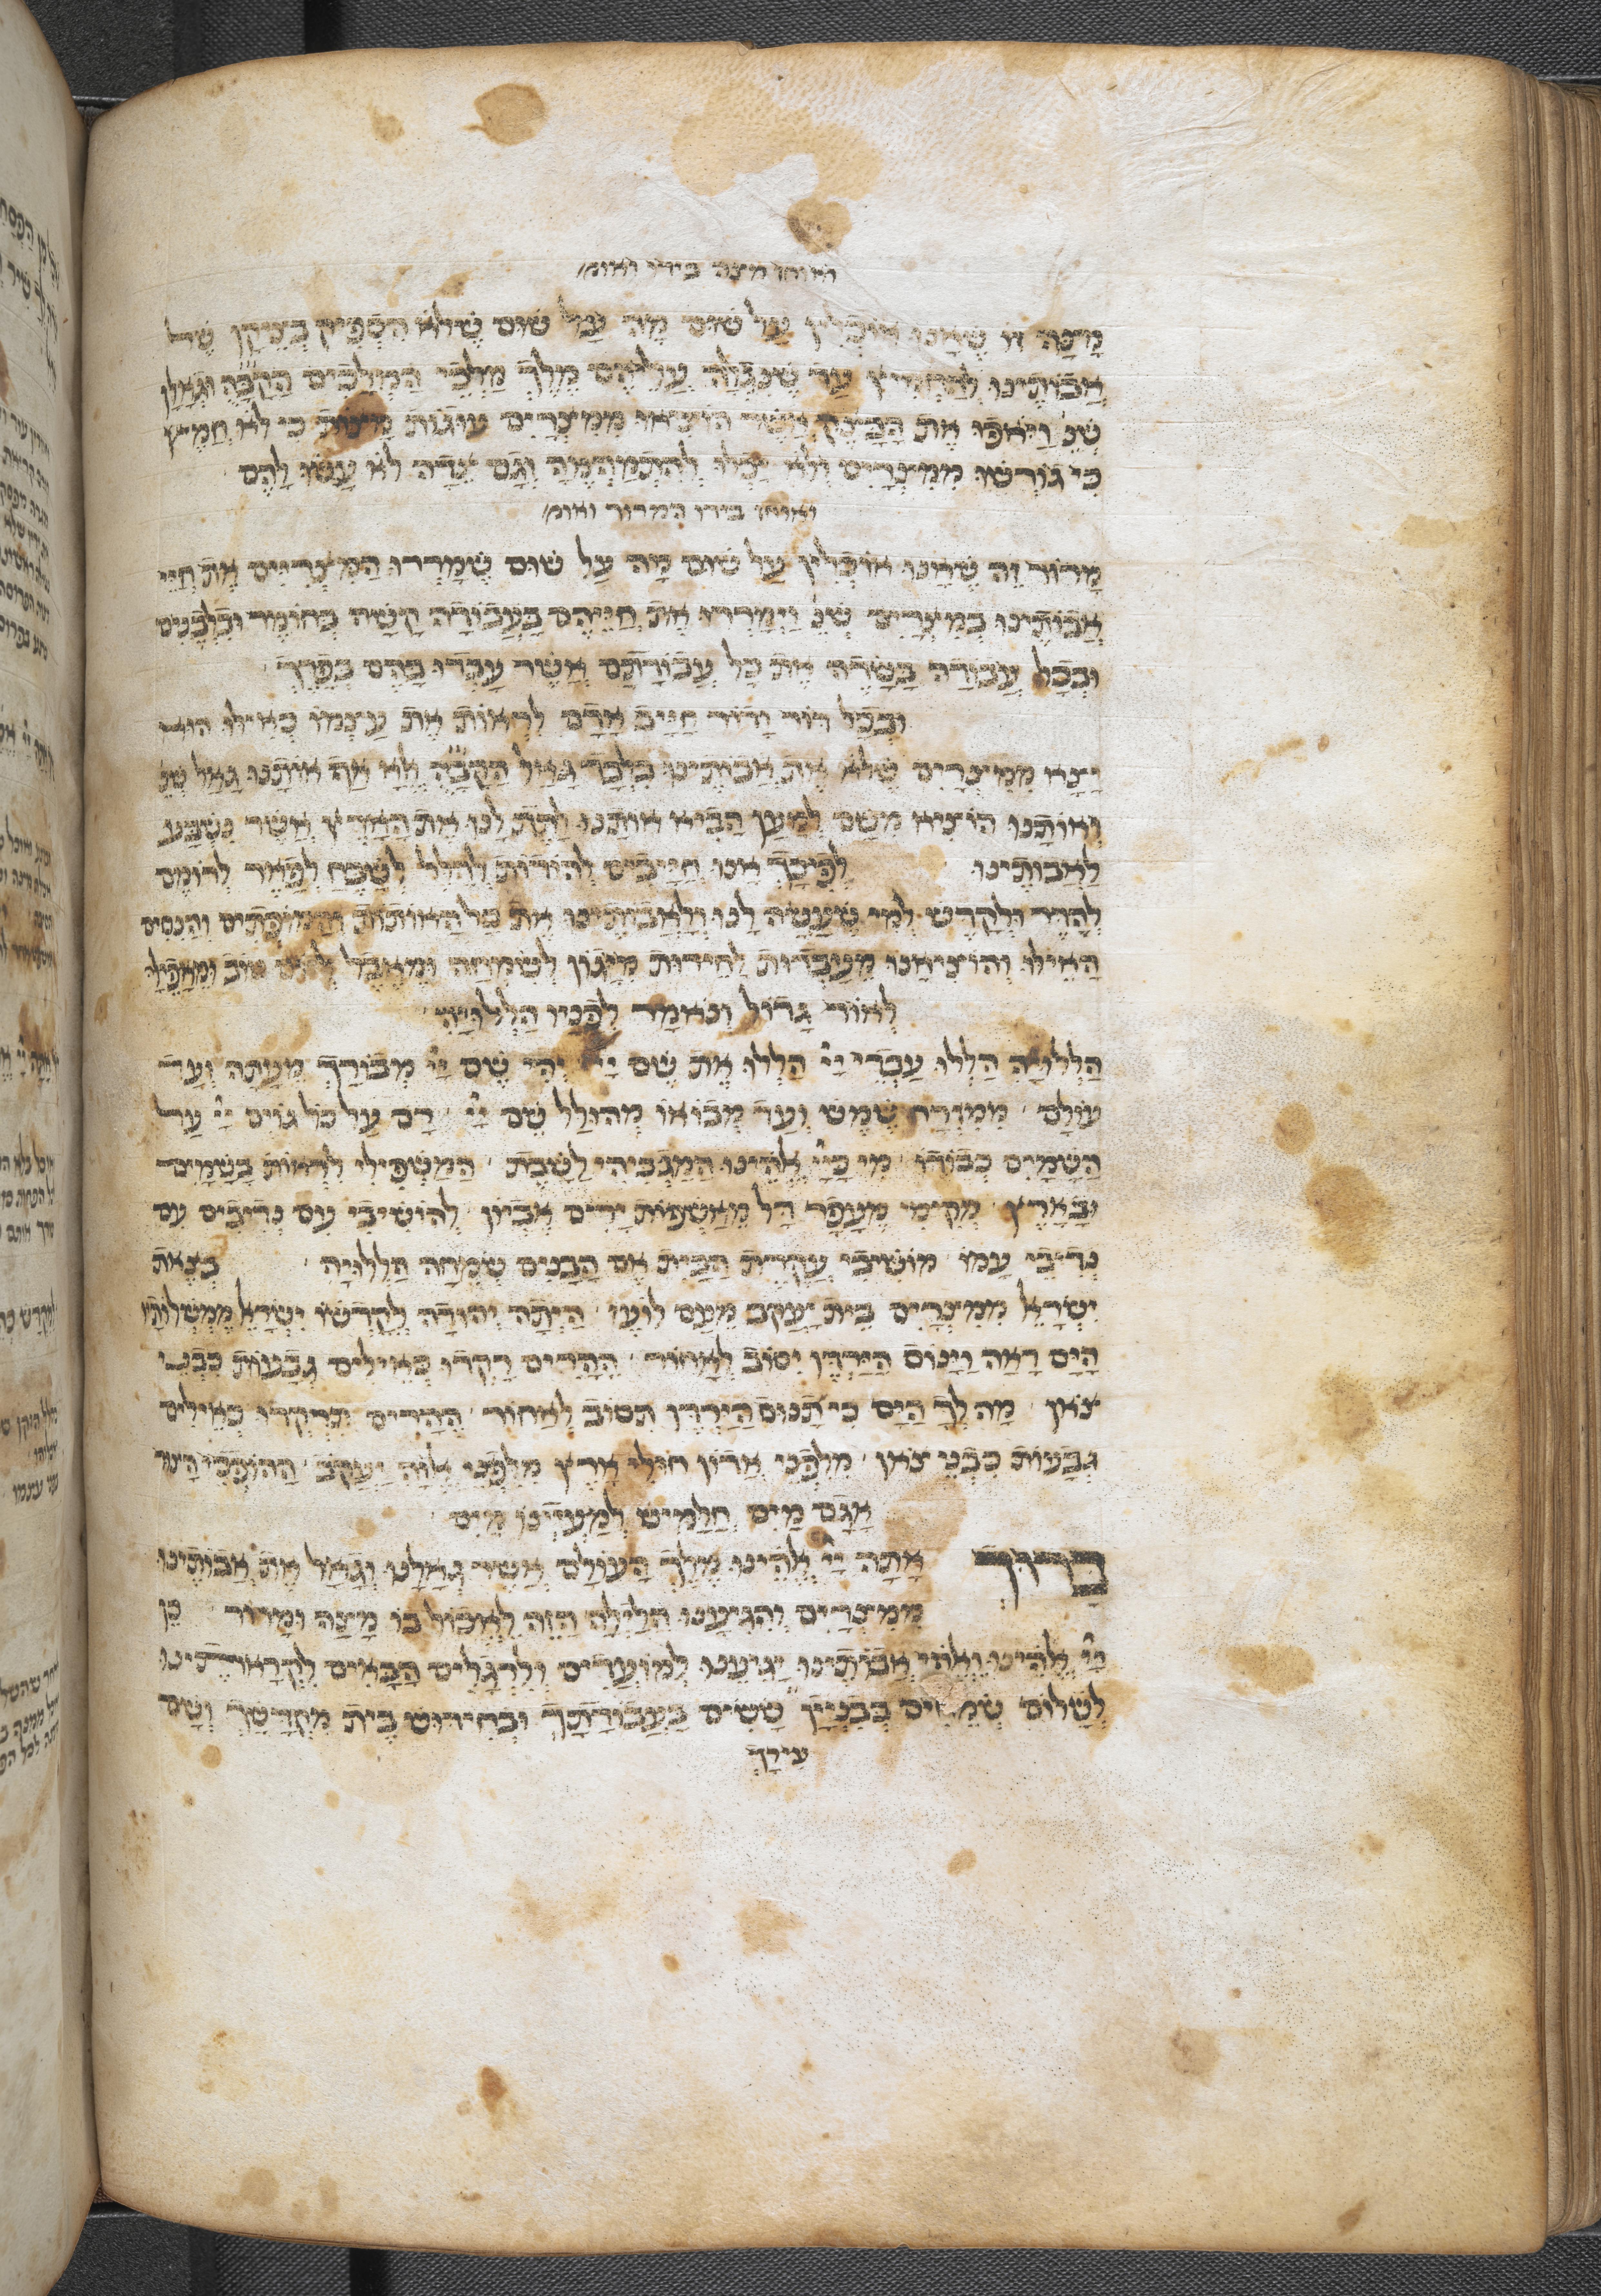 ואוחז מצה בידו ואומ׳
מַצָּה זוֹ שֶׁאָנוּ אוֹכְלִין עַל שׁוּם מָה עַל שׁוּם שֶׁלֹּא הִסְפִּיק בְּצֵקָן שֶׁל
אֲבוֹתֵינוּ לְהַחְמִיץ עַד שֶׁנִּגְלָה עֲלֵיהֶם מֶלֶךְ מַלְכֵי הַמְּלָכִים הַקָּבָּ״ה וּגְאָלָן
שֶׁנֶּ׳ וַיֹּאפוּ אֶת הַבָּצֵק אֲשֶׁר הוֹצִיאוּ מִמִּצְרַיִם עוּגוֹת מַצּוֹת כִּי לֹא חָמֵץ
כִּי גוֹרְשׁוּ מִמִּצְרַיִם וְלֹא יָכְלוּ לְהִתְמַהְמֵהַּ וְגַם צֵדָה לֹא עָשׂוּ לָהֶם
ואוחז בידו המרור ואומ׳
מָרוֹר זֶה שֶׁאָנוּ אוֹכְלִין עַל שׁוּם מָה עַל שׁוּם שֶׁמָּרְרוּ הַמִּצְרִיִּים אֶת חַיֵּי
אֲבוֹתֵינוּ בְּמִצְרַיִם שֶׁנֶּ׳ וַיְמָרְרוּ אֶת חַיֵּיהֶם בַּעֲבוֹדָה קָשָׁה בְּחוֹמֶר וּבִלְבֵנִים
וּבְכָל עֲבוֹדָה בַּשָּׂדֶה אֶת כָּל עֲבוֹדָתָם אֲשֶׁר עָבְדוּ בָהֶם בְּפָרֶךְ
וּבְכָל דּוֹר וָדוֹר חַיָּיב אָדָם לִרְאוֹת אֶת עַצְמוֹ כְּאִילּוּ הוּא
יָצָא מִמִּצְרַיִם שֶׁלֹּא אֶת אֲבוֹתֵינוּ בִּלְבַד גָּאַל הַקָּבָּ״ה אֶלָּא אַף אוֹתָנוּ גָּאַל שֶׁנֶּ׳
וְאוֹתָנוּ הוֹצִיא מִשָּׁם לְמַעַן הָבִיא אוֹתָנוּ לָתֶת לָנוּ אֶת הָאָרֶץ אֲשֶׁר נִשְׁבַּע
לַאֲבוֹתֵינוּ לְפִיכָךְ אָנוּ חַיָּיבִים לְהוֹדוֹת לְהַלֵּל לְשַׁבֵּחַ לְפָאֵר לְרוֹמֵם
לְהַדֵּר וּלְקַדֵּשׁ לְמִי שֶׁעָשָׂה לָנוּ וְלַאֲבוֹתֵינוּ אֶת כָּל הָאוֹתוֹת וְהַמּוֹפְתִים וְהַנִּסִּים
הָאֵילּוּ וְהוֹצִיאָנוּ מֵעַבְדוּת לְחֵירוּת מִיָּגוֹן לְשִׂמְחָה וּמֵאֵבֶל לְיוֹם טוֹב וּמֵאֲפֵילָה
לְאוֹר גָּדוֹל וְנֹאמַר לְפָנָיו הַלְלוּיָהּ
הַלְלוּיָהּ הַלְלוּ עַבְדֵי יְיָ׳ הַלְלוּ אֶת שֵׁם יְיָ׳ יְהִי שֵׁם יְיָ׳ מְבוֹרָךְ מֵעַתָּה וְעַד
עוֹלָם מִמִּזְרַח שֶׁמֶשׁ וְעַד מְבוֹאוֹ מְהוּלָּל שֵׁם יְיָ׳ רָם עַל כֹּל גּוֹיִם יְיָ׳ עַל
הַשָּׁמַיִם כְּבוֹדוֹ מִי כַּיְיָ׳ אֱלֹהֵינוּ הַמַּגְבִּיהִי לָשָׁבֶת הַמַּשְׁפִּילִי לִרְאוֹת בַּשָּׁמַיִם
וּבָאָרֶץ מְקִימִי מֵעָפָר דָּל מֵאַשְׁפּוֹת יָרִים אֶבְיוֹן לְהוֹשִׁיבִי עִם נְדִיבִים עִם
נְדִיבֵי עַמּוֹ מוֹשִׁיבִי עֲקֶרֶת הַבַּיִת אֵם הַבָּנִים שְׂמֵחָה הַלְלוּיָהּ בְּצֵאת
יִשְׂרָאֵל מִמִּצְרַיִם בֵּית יַעֲקֹב מֵעַם לוֹעֵז הָיְתָה יְהוּדָה לְקָדְשׁוֹ יִשְׂרָאֵל מַמְשְׁלוֹתָיו
הַיָּם רָאָה וַיָּנוֹס הַיַּרְדֵּן יִסּוֹב לְאָחוֹר הֶהָרִים רָקְדוּ כְאֵילִים גְּבָעוֹת כִּבְנֵי
צֹאן מַה לְּךָ הַיָּם כִּי תָנוּס הַיַּרְדֵּן תִּסּוֹב לְאָחוֹר הֶהָרִים תִּרְקְדוּ כְאֵילִים
גְּבָעוֹת כִּבְנֵי צֹאן מִלִּפְנֵי אָדוֹן חוּלִי אָרֶץ מִלִּפְנֵי אֱלוֹהַּ יַעֲקֹב הַהוֹפְכִי הַצּוּר
אֲגַם מָיִם חַלָּמִישׁ לְמַעְיְינוֹ מָיִם
בָּרוּךְ אַתָּה יְיָ׳ אֱלֹהֵינוּ מֶלֶךְ הָעוֹלָם אֲשֶׁר גְּאָלָנוּ וְגָאַל אֶת אֲבוֹתֵינוּ
מִמִּצְרַיִם וְהִגִּיעָנוּ הַלַּיְלָה הַזֶּה לֶאֱכוֹל בּוֹ מַצָּה וּמָרוֹר כֵּן
יְיָ׳ אֱלֹהֵינוּ וֵאלֹהֵי אֲבוֹתֵינוּ יַגִּיעֵנוּ לְמוֹעֲדִים וְלִרְגָלִים הַבָּאִים לִקְרָאתֵינוּ
לְשָׁלוֹם שְׂמֵחִים בְּבִנְיַין שָׂשִׂים בַּעֲבוֹדָתָךְ וּבְחִידּוּשׁ בֵּית מִקְדָּשָׁךְ וְשָׁם
עִירָךְ